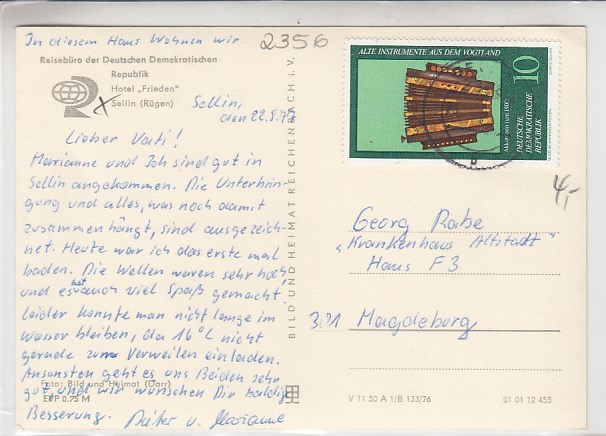 In diesem Haus wohnen wir
2356
Reisebüro der Deutschen Demokratischen
Republik
Hotel „Frieden"
Sellin (Rügen)
Sellin,
den 22.8.77
Lieber Vati!
Marianne und Ich sind gut in
Sellin angekommen. Die Unterbrin-
gung und alles, was noch damit
zusammenhängt, sind ausgezeich-
net. Heute war ich das erste mal
baden. Die Wellen waren sehr hoch
und es hat auch viel Spaß gemacht
Leider konnte man nicht lange im
Wasser bleiben, da 16°C nicht
gerade zum Verweilen einladen.
Ansonsten geht es uns Beiden sehr
gut, und wir wünschen Dir baldige
Besserung. Dieter u. Marianne
Foto: Bild und Heimat (Darr)
EVP 0.75 M
BILD UND HEIMAT REICHENBACH i. V.
ALTE INSTRUMENTE AUS DEM VOGTLAND
10
DEUTSCHE
DEMOKRATISCHE
REPUBLIK
Akkordeon (um 1900)
4,-
Georg Rabe
„Krankenhaus Altstadt"
Haus F3
301 Magdeburg
V 11 50 A 1/B 123/76
01 01 12 455